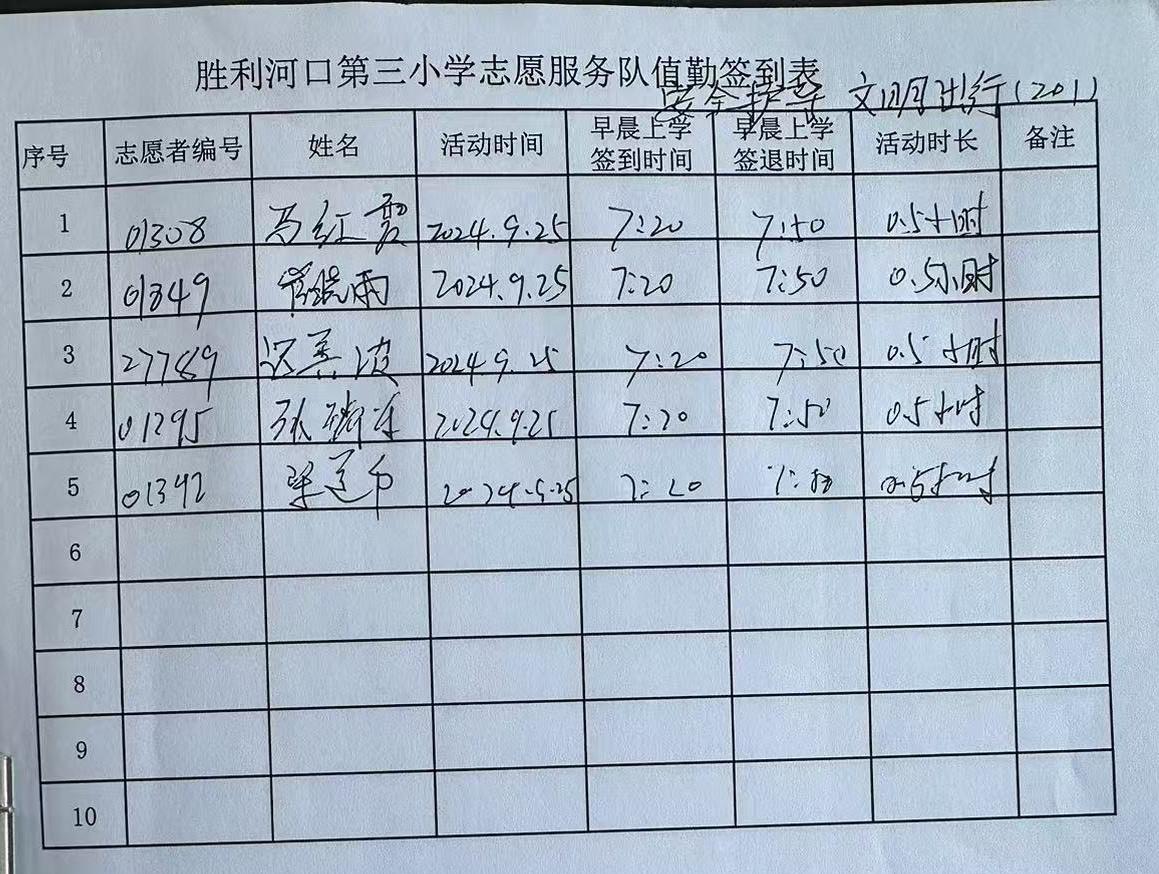 胜利河口第三小学志愿服务队值勤签到表
安全护学 文明出行(201)
序号 志愿者编号 姓名 活动时间 早晨上学签到时间 早晨上学签退时间 活动时长 备注
1 01308 马红霞 2024.9.25 7:20 7:50 0.5小时
2 01349 雨 2024.9.25 7:20 7:50 0.5小时
3 27789 2024.9.25 7:20 7:50 0.5小时
4 01295 张 2024.9.25 7:20 7:50 0.5小时
5 01342 2024.9.25 7:20 0.5小时
6
7
8
9
10